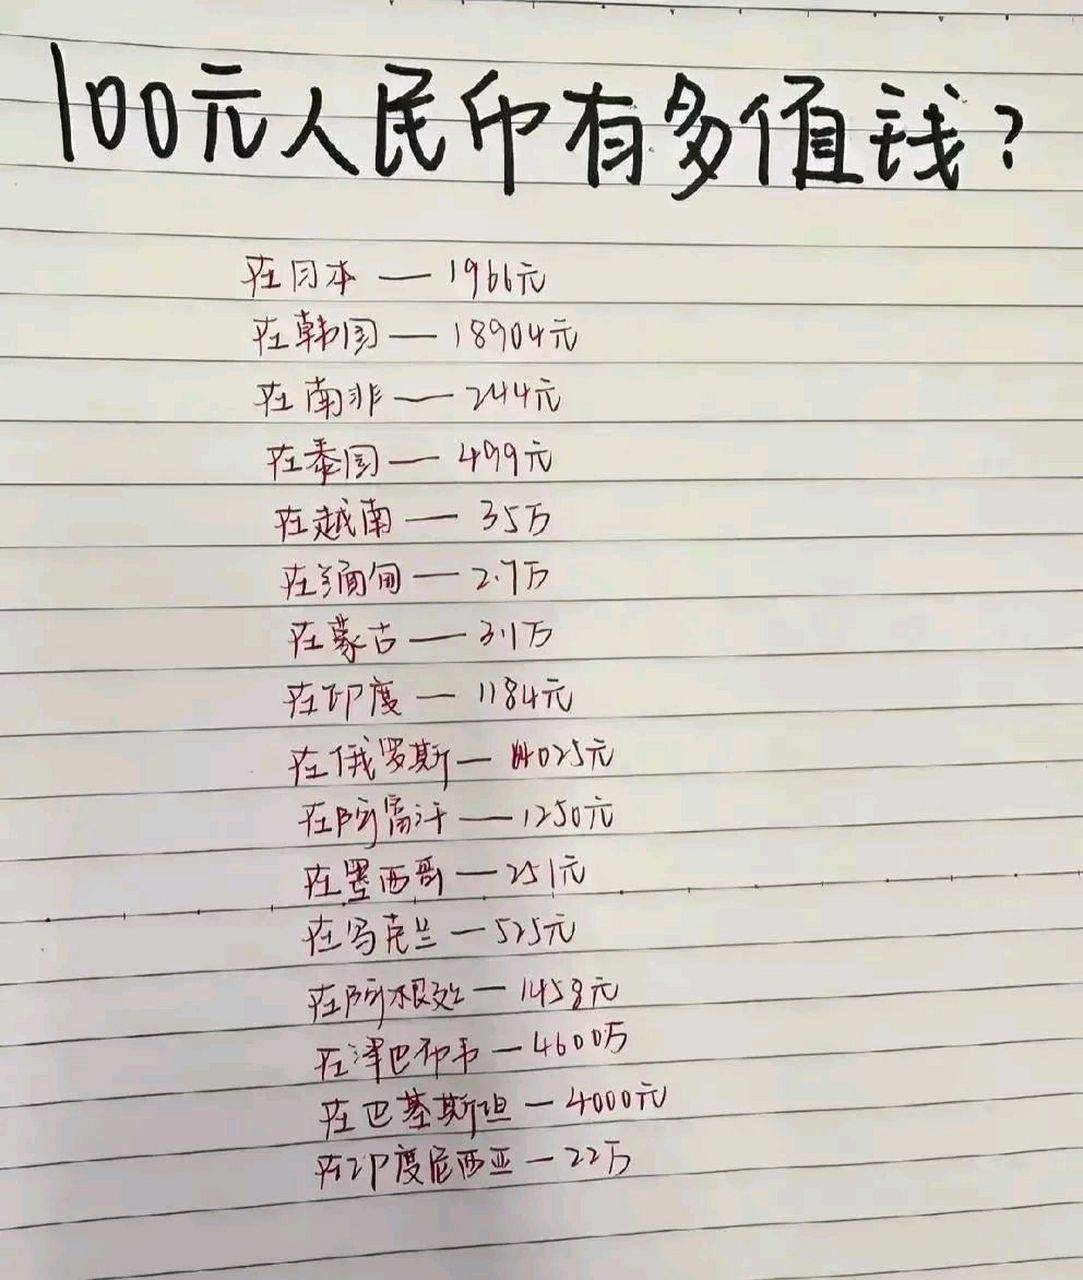 100元人民币有多值钱?
在日本 — 1966元
在韩国 — 18904元
在南非 — 244元
在泰国 — 499元
在越南 — 35万
在缅甸 — 2.7万
在蒙古 — 3.1万
在印度 — 1184元
在俄罗斯 — 1025元
在阿富汗 — 1250元
在墨西哥 — 251元
在乌克兰 — 525元
在阿根廷 — 1458元
在津巴布韦 — 4600万
在巴基斯坦 — 4000元
在印度尼西亚 — 22万